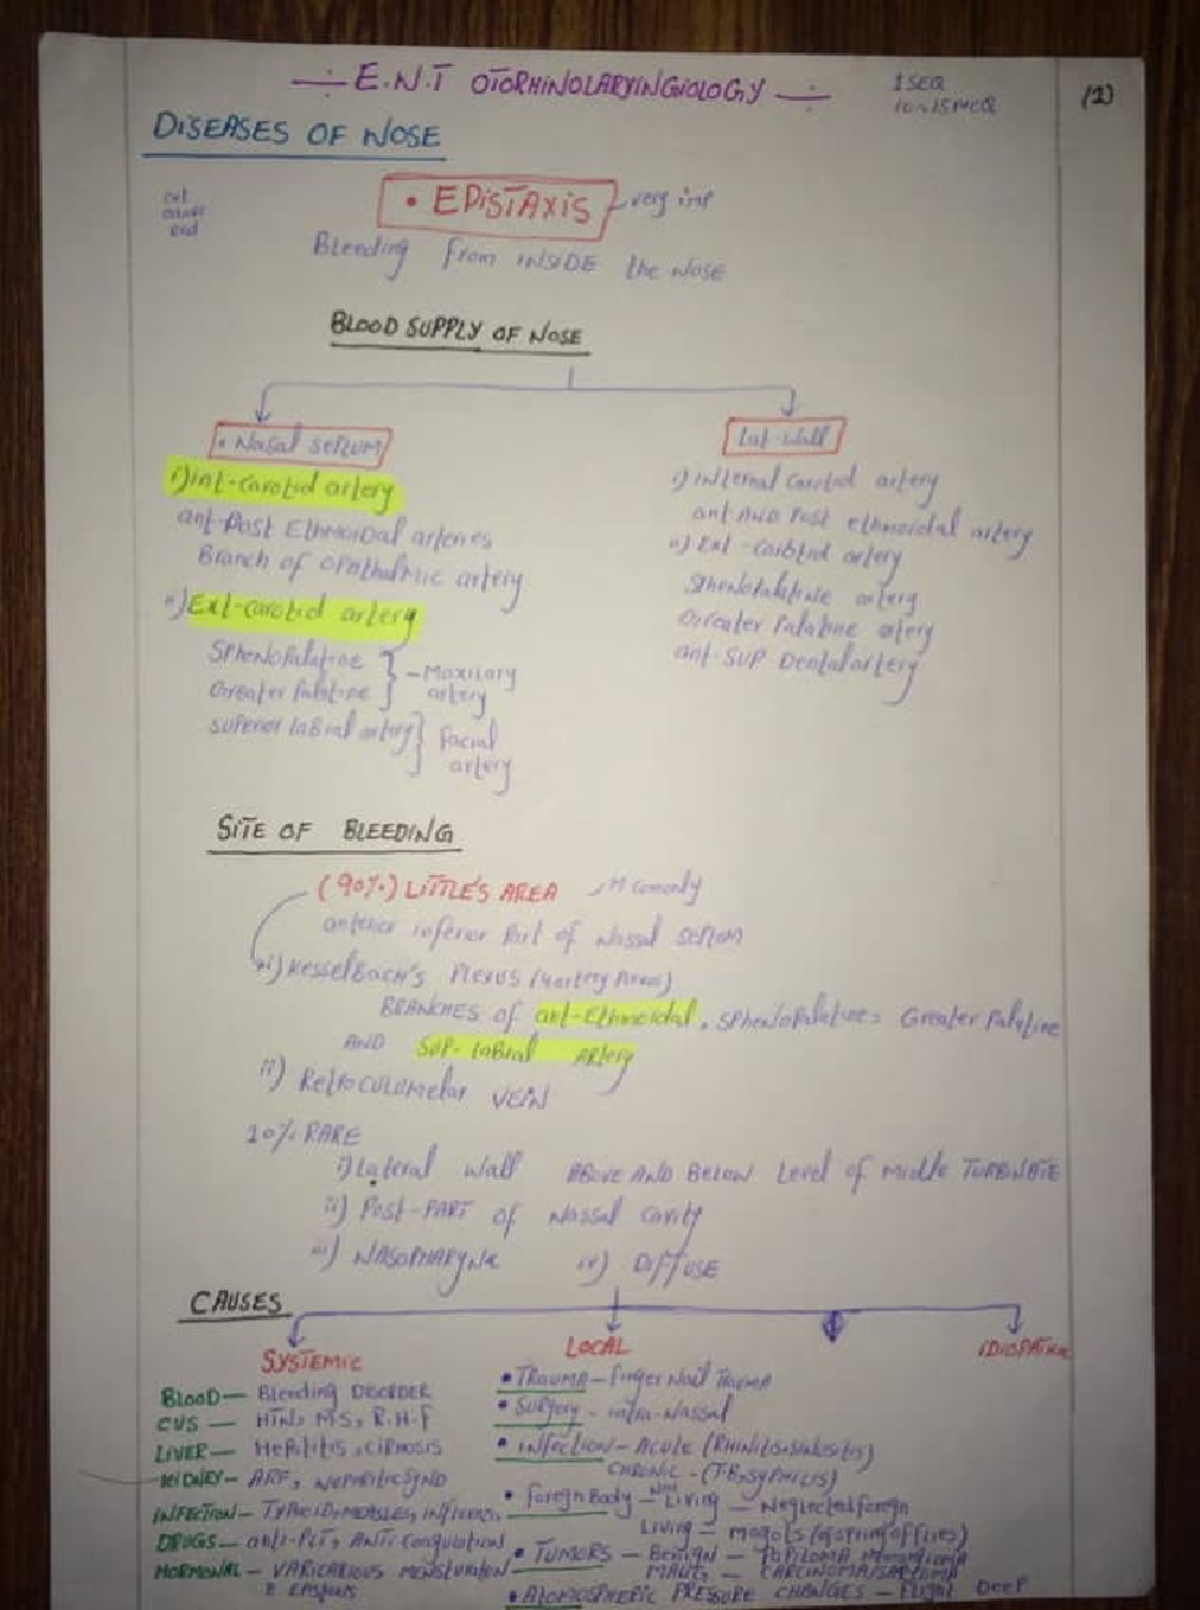 E.N.T OTORHINOLARYINGIOLOGY
1 SEQ
(1)
DISEASES OF NOSE
• EPISTAXIS
very imp
Bleeding from INSIDE the NOSE
BLOOD SUPPLY OF NOSE
• Nasal SEPTUM
i) int-carotid artery
ant-Post Ethmoidal arteries
Branch of opathalmic artery
ii) Ext-carotid artery
SPhenoPalatine
Greater Palatine
- Maxilary artery
superior labial artery
facial artery
Lat-wall
i) internal carotid artery
ant AND Post ethmoidal artery
ii) Ext-carotid artery
SphenoPalatine artery
Greater Palatine artery
ant-SUP Dental artery
SITE OF BLEEDING
(90%) LITTLE'S AREA
M comonly
anterior inferior Part of Nassal SEPTUM
i) KesselBach's Plexus
BRANCHES of ant-Ethmoidal, SPhenoPalatine, Greater Palatine
AND SUP-labial ARtery
ii) Retrocolumelar VEIN
10% RARE
i) Lateral wall ABOVE AND BELOW level of middle TURBINATE
ii) Post-PART of Nassal cavity
iii) NASOPHARYNX iv) DIFFUSE
CAUSES
SYSTEMIC
LOCAL
BLOOD — Bleeding DISORDER
CVS — HTN, M.S, R.H.F
LIVER — Hepititis, CIRHOSIS
KIDNEY — ARF, NephriticSynd
INFECTION — TYPHOID, measles,
DRUGS — anti-PLT, ANTI-Coagulation
HORMONAL — VARICARIOUS
• TRAUMA — finger Nail TRAUMA
• Surgery - intra-Nassal
• infection — Acute
CHRONIC - (T.B, SYPHILIS)
• foreign Body — Non Living — Neglected foreign
Living —
• TUMORS — Benign —
PRESSURE CHANGES — Flight Deep